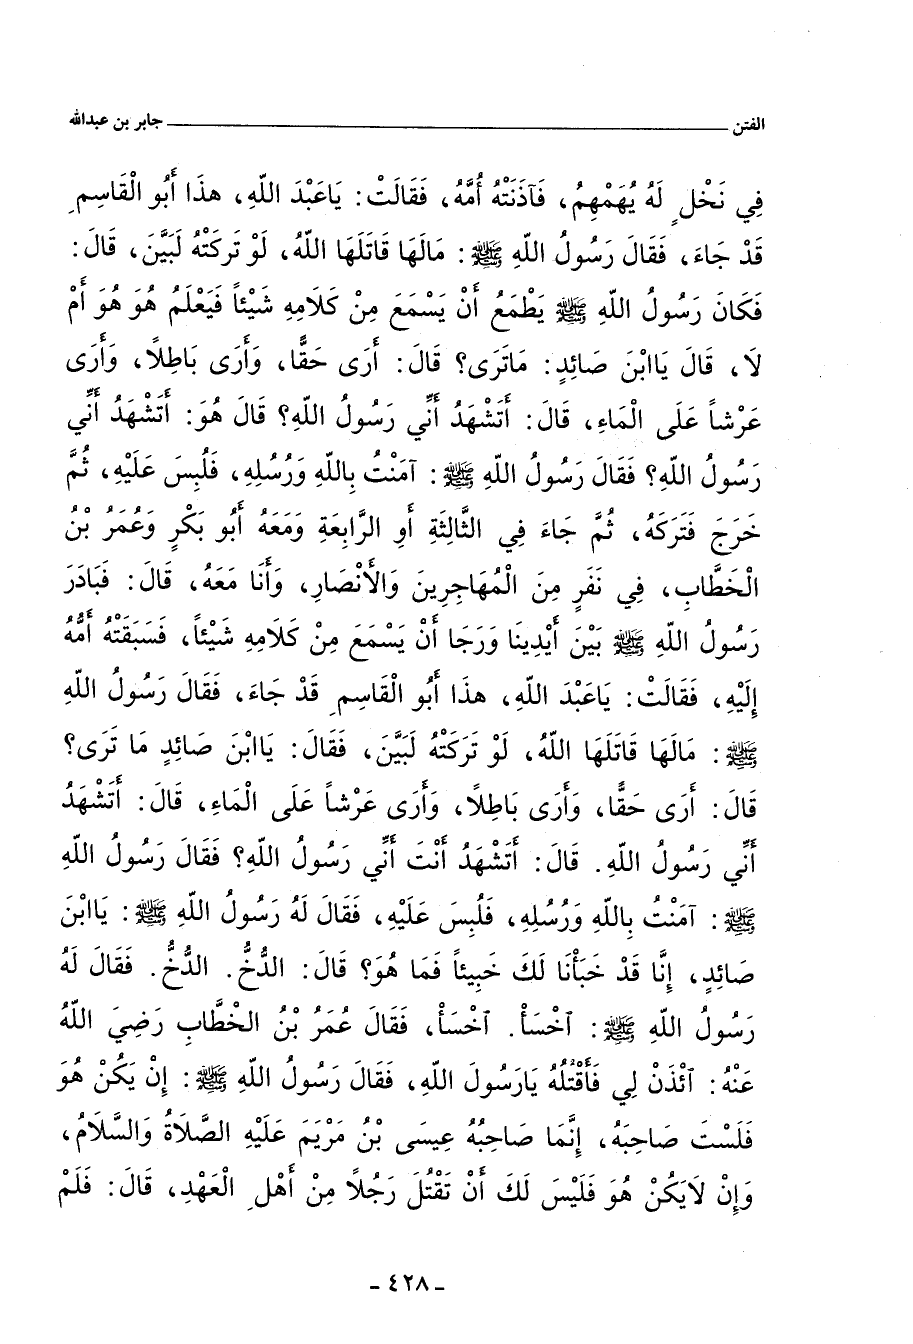 الفتن ــــــــــــــــــــــــــــــــــــــــ جابر بن عبدالله
فِي نَخْلٍ لَهُ يُهَمْهِمُ، فَآذَنَتْهُ أُمُّهُ، فَقَالَتْ: يَاعَبْدَ اللّهِ، هذَا أَبُو الْقَاسِمِ
قَدْ جَاءَ، فَقَالَ رَسُولُ اللّهِ ﷺ: مَالَهَا قَاتَلَهَا اللّهُ، لَوْ تَرَكَتْهُ لَبَيَّنَ، قَالَ:
فَكَانَ رَسُولُ اللّهِ ﷺ يَطْمَعُ أَنْ يَسْمَعَ مِنْ كَلَامِهِ شَيْئاً فَيَعْلَمُ هُوَ هُوَ أَمْ
لَا، قَالَ يَاابْنَ صَائِدٍ: مَاتَرَى؟ قَالَ: أَرَى حَقًّا، وَأَرَى بَاطِلًا، وَأَرَى
عَرْشاً عَلَى الْمَاءِ، قَالَ: أَتَشْهَدُ أَنِّي رَسُولُ اللّهِ؟ قَالَ هُوَ: أَتَشْهَدُ أَنِّي
رَسُولُ اللّهِ؟ فَقَالَ رَسُولُ اللّهِ ﷺ: آمَنْتُ بِاللّهِ وَرُسُلِهِ، فَلُبِسَ عَلَيْهِ، ثُمَّ
خَرَجَ فَتَرَكَهُ، ثُمَّ جَاءَ فِي الثَّالِثَةِ أَوِ الرَّابِعَةِ وَمَعَهُ أَبُو بَكْرٍ وَعُمَرُ بْنُ
الْخَطَّابِ، فِي نَفَرٍ مِنَ الْمُهَاجِرِينَ وَالْأَنْصَارِ، وَأَنَا مَعَهُ، قَالَ: فَبَادَرَ
رَسُولُ اللّهِ ﷺ بَيْنَ أَيْدِينَا وَرَجَا أَنْ يَسْمَعَ مِنْ كَلَامِهِ شَيْئاً، فَسَبَقَتْهُ أُمُّهُ
إِلَيْهِ، فَقَالَتْ: يَاعَبْدَ اللّهِ، هذَا أَبُو الْقَاسِمِ قَدْ جَاءَ، فَقَالَ رَسُولُ اللّهِ
ﷺ: مَالَهَا قَاتَلَهَا اللّهُ، لَوْ تَرَكَتْهُ لَبَيَّنَ، فَقَالَ: يَاابْنَ صَائِدٍ مَا تَرَى؟
قَالَ: أَرَى حَقًّا، وَأَرَى بَاطِلًا، وَأَرَى عَرْشاً عَلَى الْمَاءِ، قَالَ: أَتَشْهَدُ
أَنِّي رَسُولُ اللّهِ. قَالَ: أَتَشْهَدُ أَنْتَ أَنِّي رَسُولُ اللّهِ؟ فَقَالَ رَسُولُ اللّهِ
ﷺ: آمَنْتُ بِاللّهِ وَرُسُلِهِ، فَلُبِسَ عَلَيْهِ، فَقَالَ لَهُ رَسُولُ اللّهِ ﷺ: يَاابْنَ
صَائِدٍ، إِنَّا قَدْ خَبَأْنَا لَكَ خَبِيئاً فَمَا هُوَ؟ قَالَ: الدُّخُّ. الدُّخُّ. فَقَالَ لَهُ
رَسُولُ اللّهِ ﷺ: ٱخْسَأْ. ٱخْسَأْ، فَقَالَ عُمَرُ بْنُ الخْطَّابِ رَضِيَ اللّهُ
عَنْهُ: ٱئْذَنْ لِي فَأَقْتُلُهُ يَارَسُولَ اللّهِ، فَقَالَ رَسُولُ اللّهِ ﷺ: إِنْ يَكُنْ هُوَ
فَلَسْتَ صَاحِبَهُ، إِنَّمَا صَاحِبُهُ عِيسَى بْنُ مَرْيَمَ عَلَيْهِ الصَّلَاةُ وَالسَّلَامُ،
وَإِنْ لَايَكُنْ هُوَ فَلَيْسَ لَكَ أَنْ تَقْتُلَ رَجُلًا مِنْ أَهْلِ الْعَهْدِ، قَالَ: فَلَمْ
- ٤٢٨ -